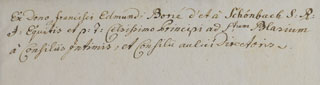 Ex dono Francisci Edmundi Borie d'et à Schönbach S. R.
I. Equitis et p: t: Celsissimo Principi ad S. Blasium
à Consiliis intimis, et Consilii aulici Directoris.